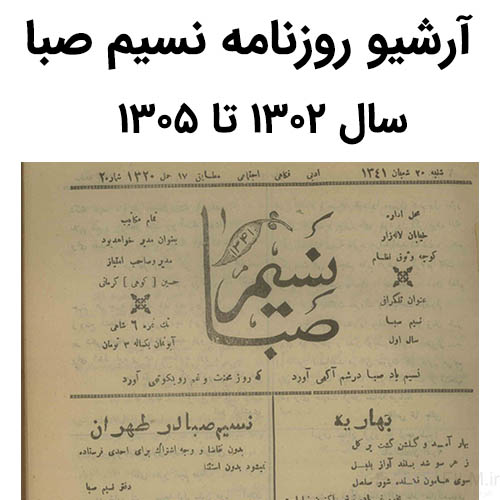 آرشیو روزنامه نسیم صبا
سال ۱۳۰۲ تا ۱۳۰۵
شنبه ۲۰ شعبان ۱۳۴۱ ادبی فکاهی اجتماعی مطابق ۱۷ حمل ۱۳۲۰ شماره ۲
محل اداره
خیابان لاله‌زار
کوچه وثوق نظام
عنوان تلگرافی
نسیم صبا
سال اول
نسیم صبا
۱۳۴۱
تمام مکاتیب
بعنوان مدیر خواهد بود
مدیر و صاحب امتیاز
حسین [ کوهی ] کرمانی
تك نمره ۶ شاهی
آبونمان یکساله ۳ تومان
نسیم باد صبا دوشم آگهی آورد
که روز محنت و غم رو بکوتهی آورد
بهاریه
بهار آمد و گلشن گشت پر گل
ز هر سو شد بلند آواز بلبل
سوی هامون
نسیم صبا در طهران
بدون تقاضا و وجه اشتراك برای احدی فرستاده
نمیشود بدون استثنا
دفتر نسیم صبا